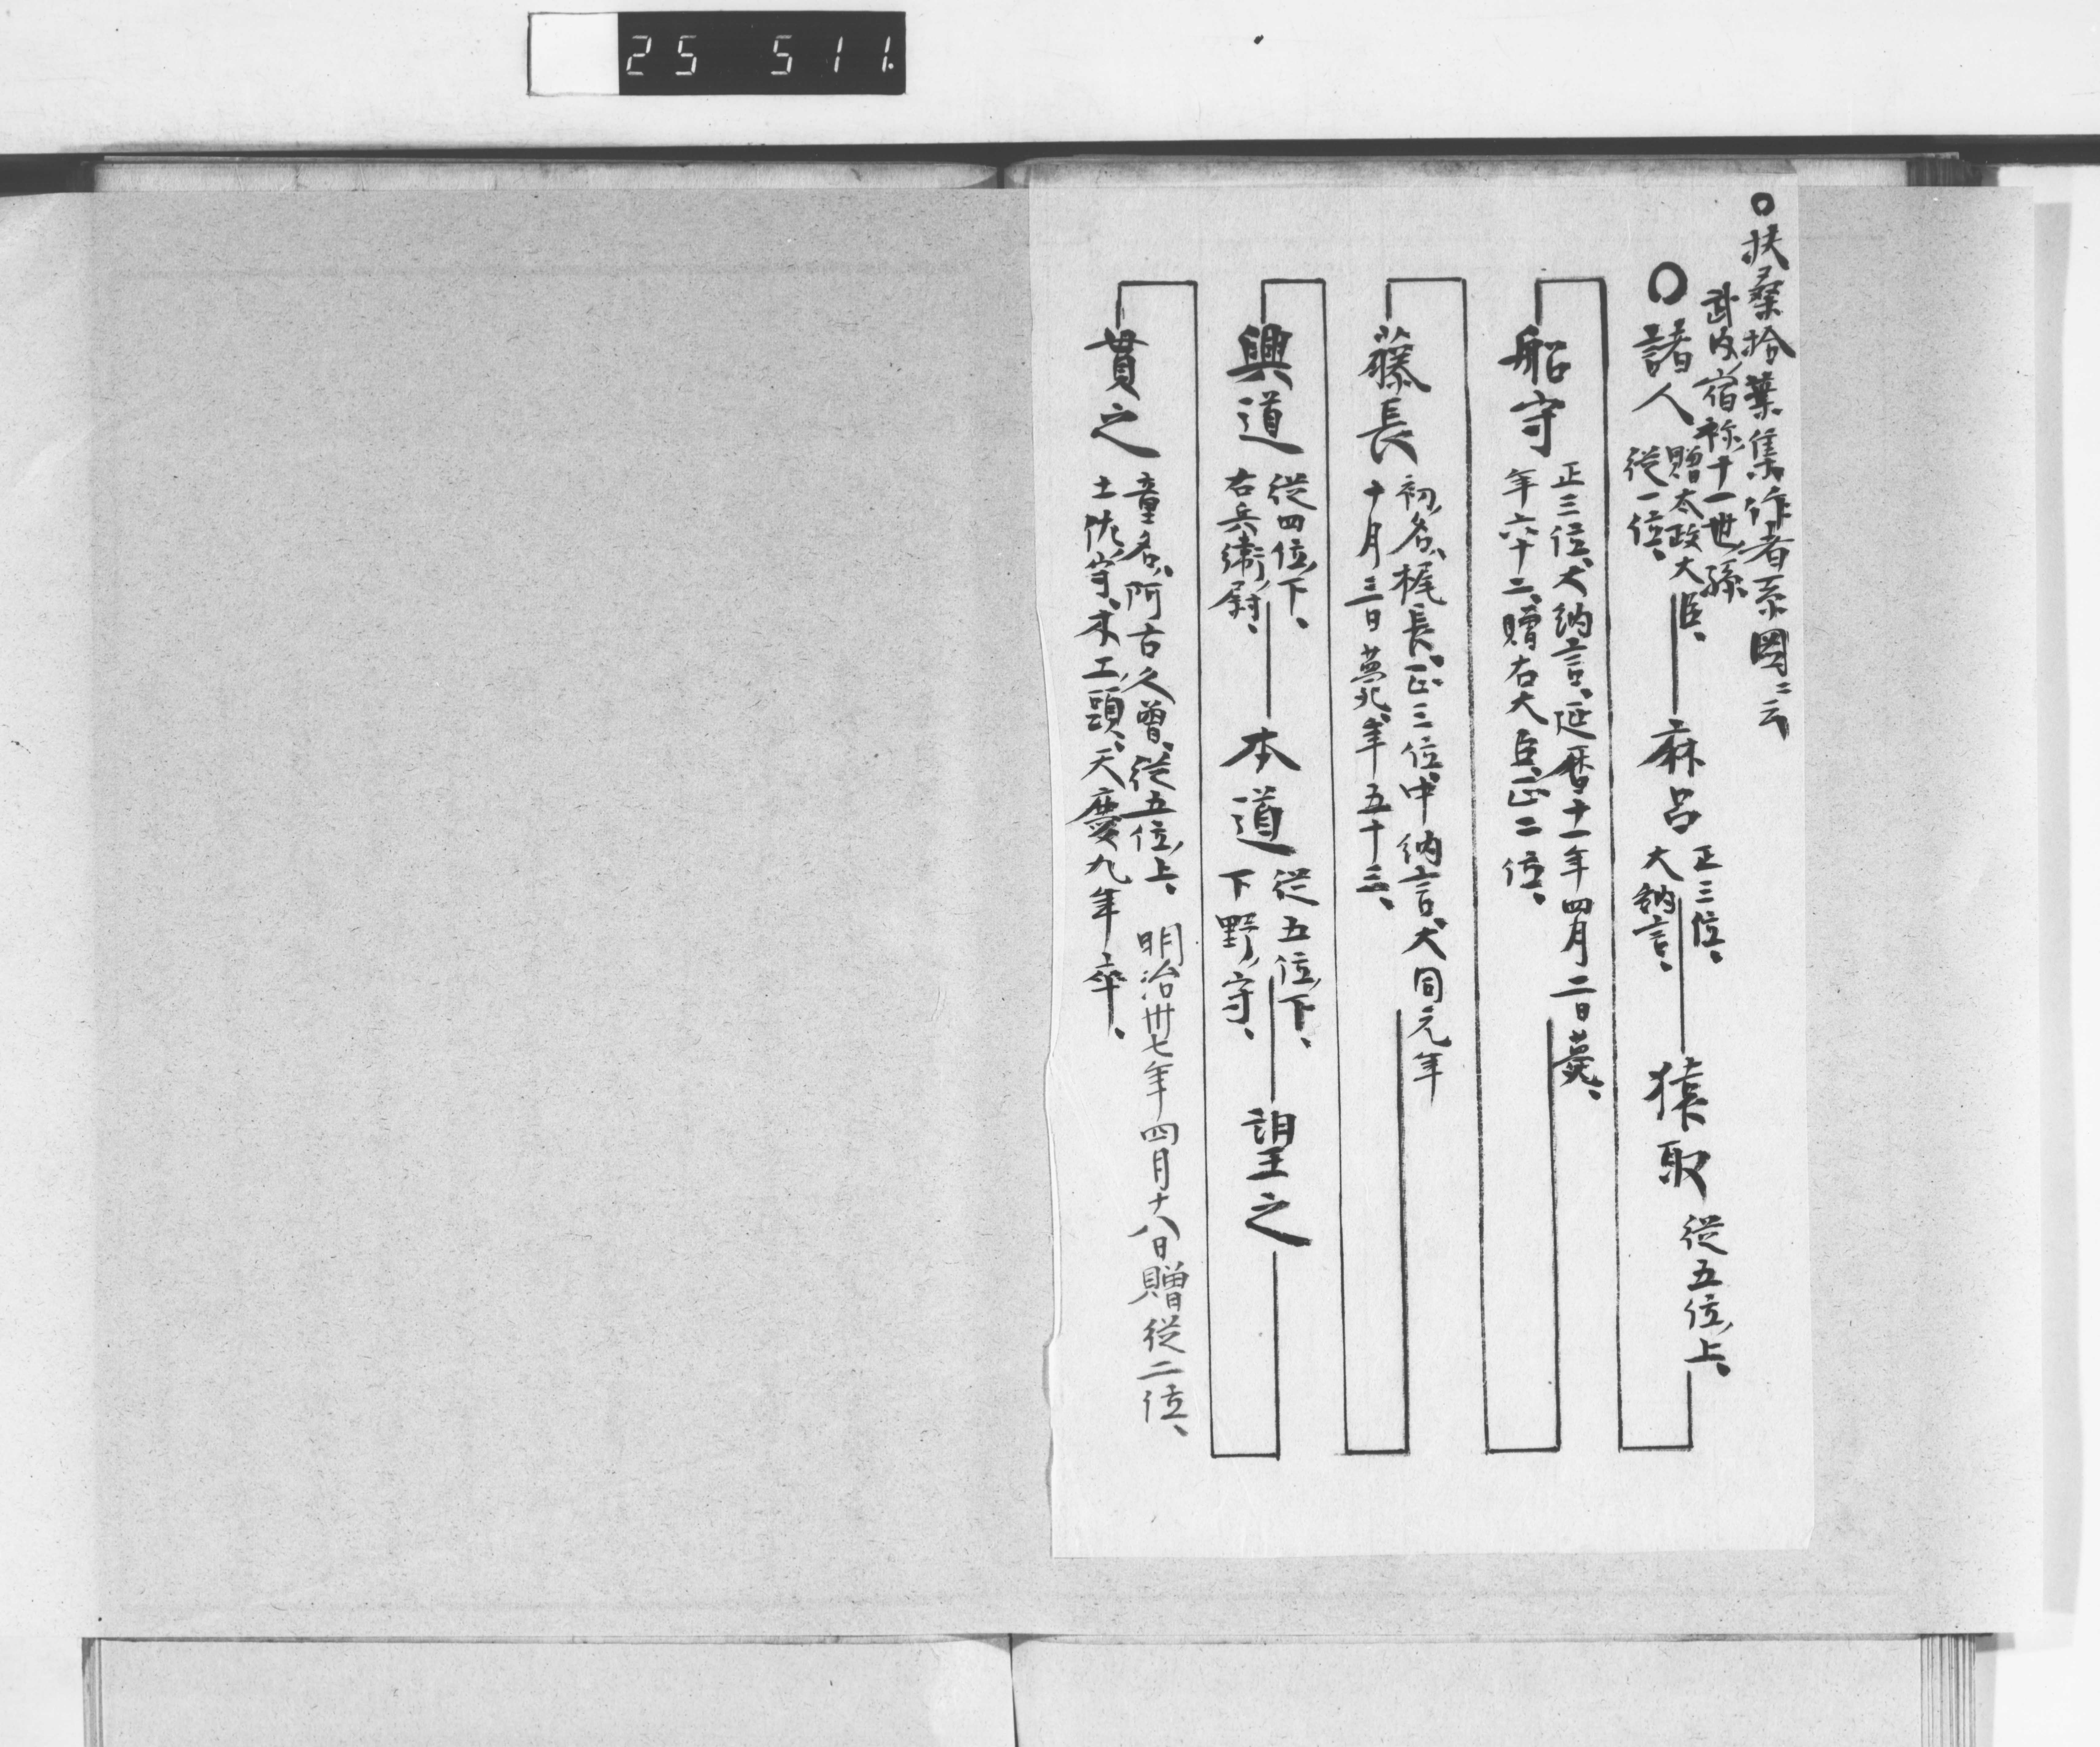 25 511.
○扶桑拾葉集作者系図ニ云
武内宿祢十一世孫
○諸人
贈太政大臣、
従一位、
麻呂
正三位、
大納言、
猿取
従五位上、
船守
正三位、大納言、延暦十一年四月二日薨、
年六十二、贈右大臣正二位、
藤長
初名、梶長、正三位、中納言、大同元年
十月三日薨、年五十三、
興道
従四位下、
右兵衛尉、
本道
従五位下、
下野守、
望之
貫之
童名、阿古久曽、従五位上、
土佐守、木工頭、天慶九年卒、
明治卅七年四月十八日贈従二位、